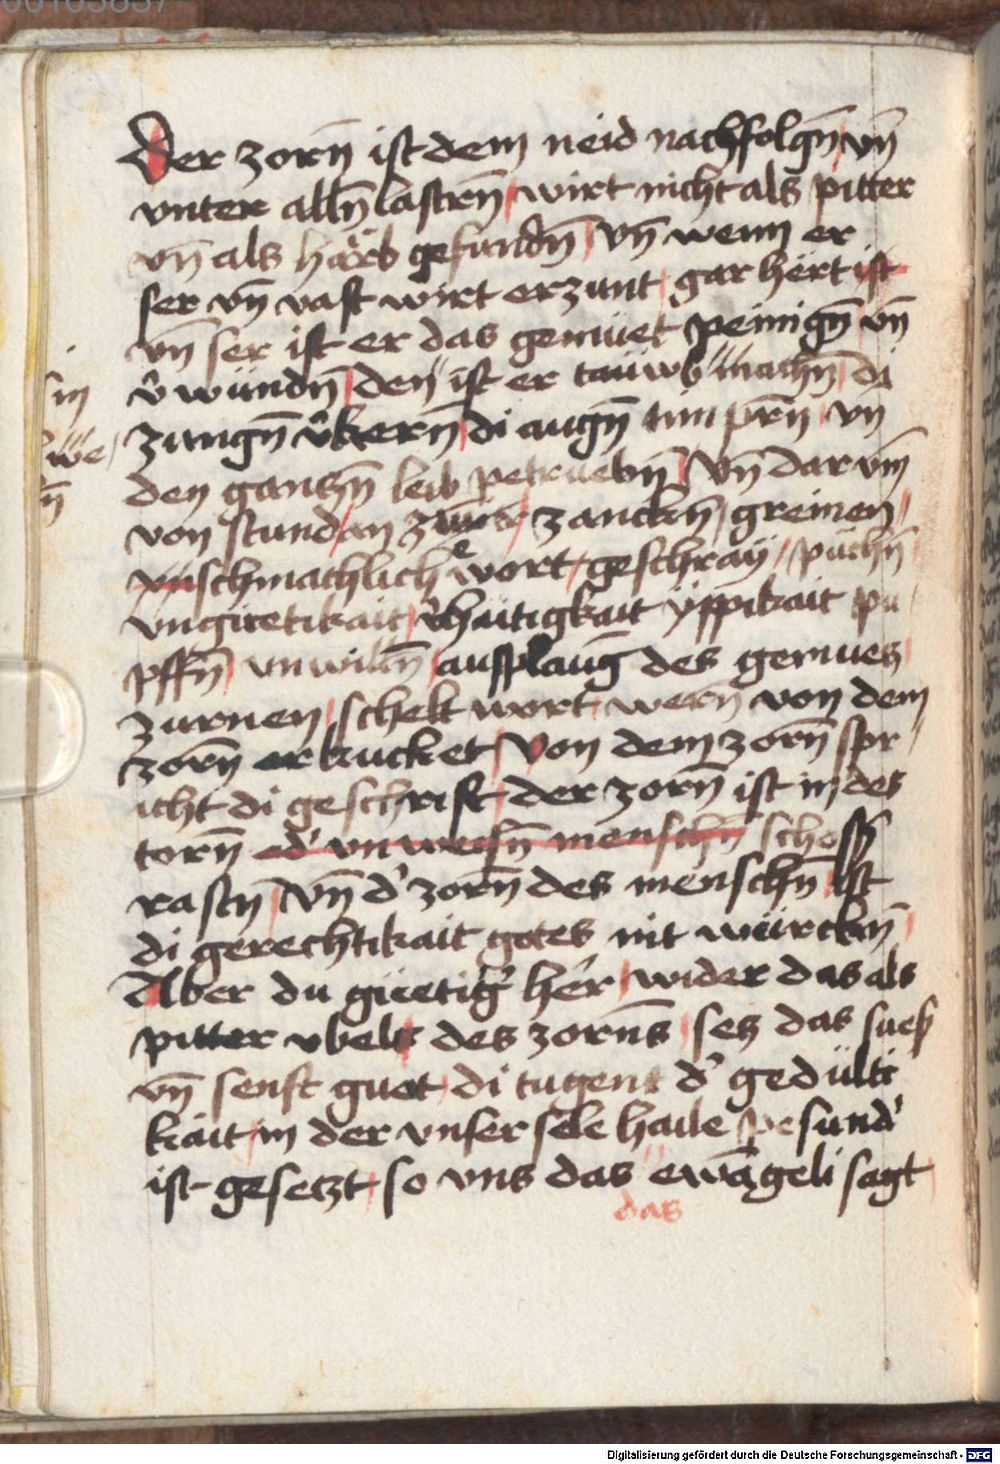 Der zorn̄ ist dem neid nachfolgn̄ vn̄
vnter alln̄ lastern̄ wirt nicht als pitter
vn̄ als härb gefundn̄ vn̄ wenn er
ser vn̄ vast wirt erzunt gar hert ist
vn̄ ser ist er das gemüet peinign̄ vn̄
v̉wundn̄ den ist er tauwb machn̄ di
zungn̄ v̉kern̄ di augn̄ vn̄
den gantzn̄ leib petruebn̄ vn̄ dar vm̄
von stund an zanckn̄ greinen
schmachlich wort geschray puchn̄
vngüetikait v̉häitigkait yppikait pu
pffn̄ vnwilln̄ auspplaūg des gemues
zurnen schelt wort wern̄ von dem
zorn̄ erkucket Von dem zorn̄ spr
icht di geschrift der zorn̄ ist in des
torn̄ schoss
rastn̄ Vn̄ d̉ zorn̄ des menschn̄ ist
di gerechtikait gotes nit würckn̄
Aber du güetig̉ her wider das als
pitter vbel des zorns̄ setz das sues
vn̄ senft guet di tugent d̉ gedulti
kait in der vnser sele haile pesund̉
ist gesetzt so vns das ewāgeli sagt
das
Digitalisierung gefördert durch die Deutsche Forschungsgemeinschaft - DFG